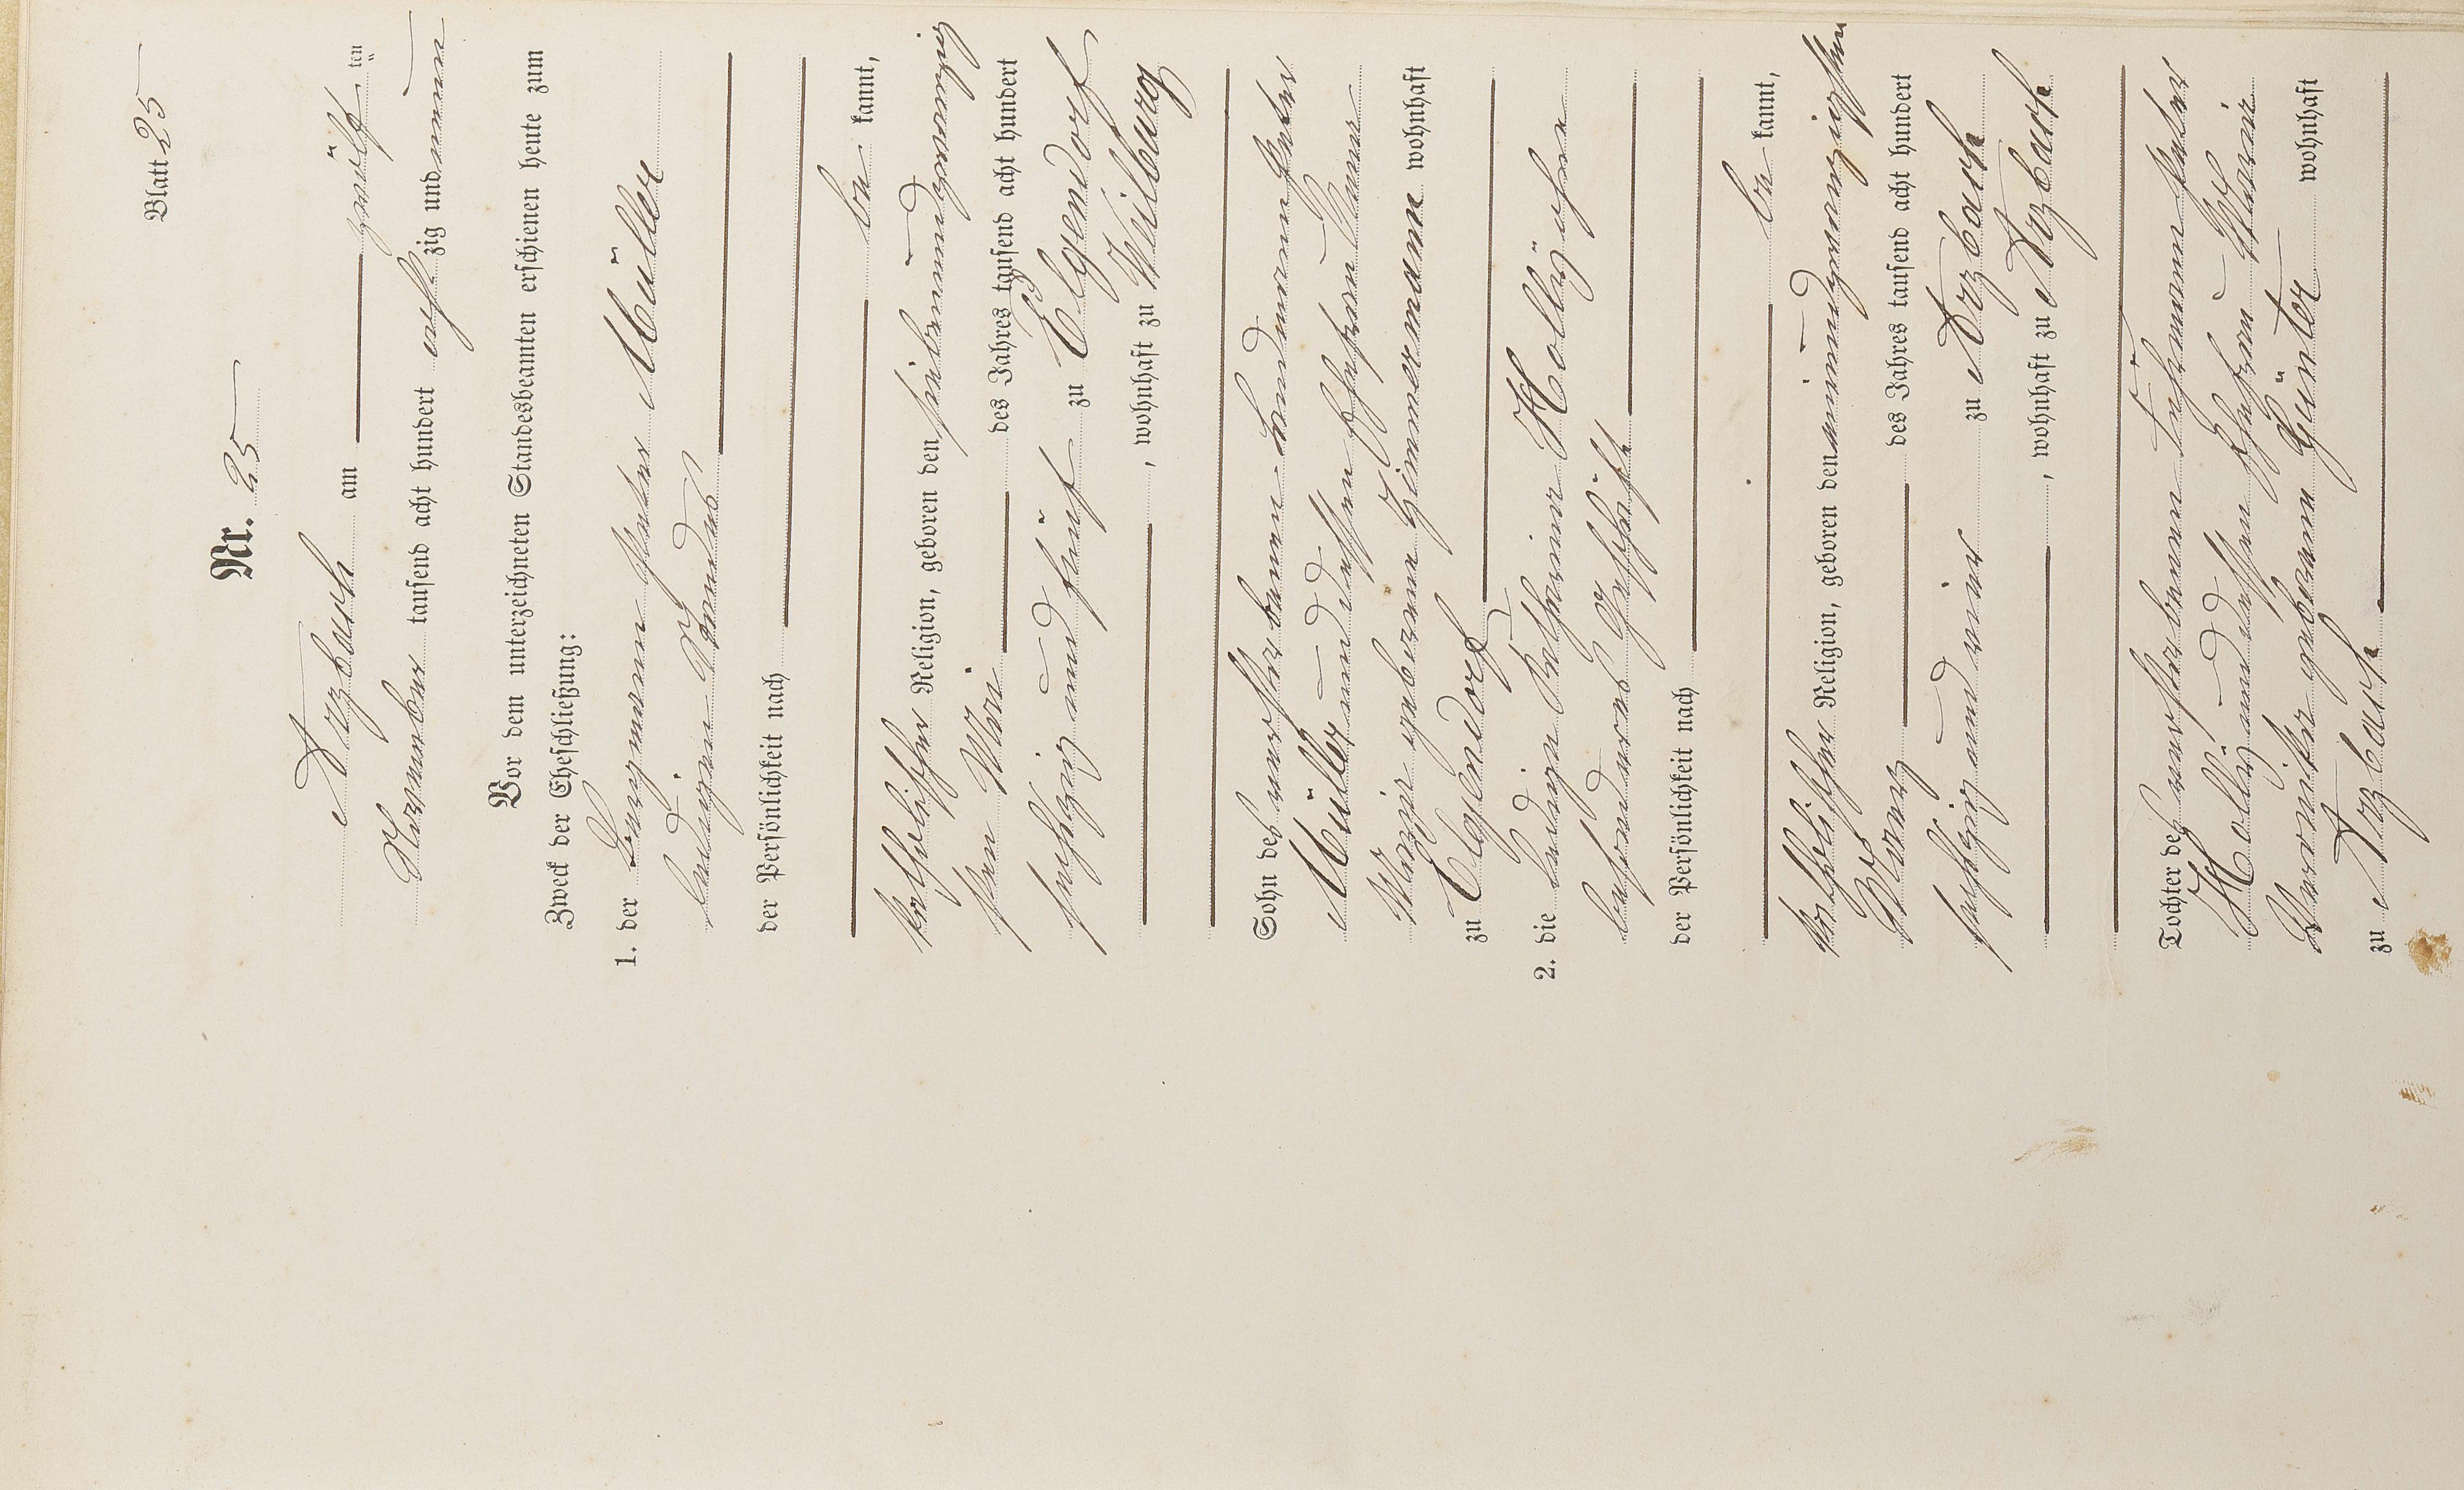 Blatt 25
Nr. 25
Arzbach am zwölf ten
November tausend acht hundert acht zig und neun
Vor dem unterzeichneten Standesbeamten erschienen heute zum
Zweck der Eheschließung:
1. der Bergmann Peter Müller
ledigen Standes
der Persönlichkeit nach
be kannt,
katholischer Religion, geboren den siebenundzwanzig
sten Mai des Jahres tausend acht hundert
sechzig und fünf zu Elgendorf
, wohnhaft zu Weilburg
Sohn des verstorbenen Landmann Peter
Müller und dessen Ehefrau Anna
Maria geborene Zimmermann wohnhaft
zu Elgendorf
2. die ledige Katharina Hollÿ ohne
besonderes Geschäft
der Persönlichkeit nach
be kannt,
katholischer Religion, geboren den einundzwanzigsten
März des Jahres tausend acht hundert
sechzig und vier zu Arzbach
, wohnhaft zu Arzbach
Tochter des verstorbenen Peter
Hollÿ und dessen Ehefrau Maria
Veronika geborene Günter wohnhaft
zu Arzbach